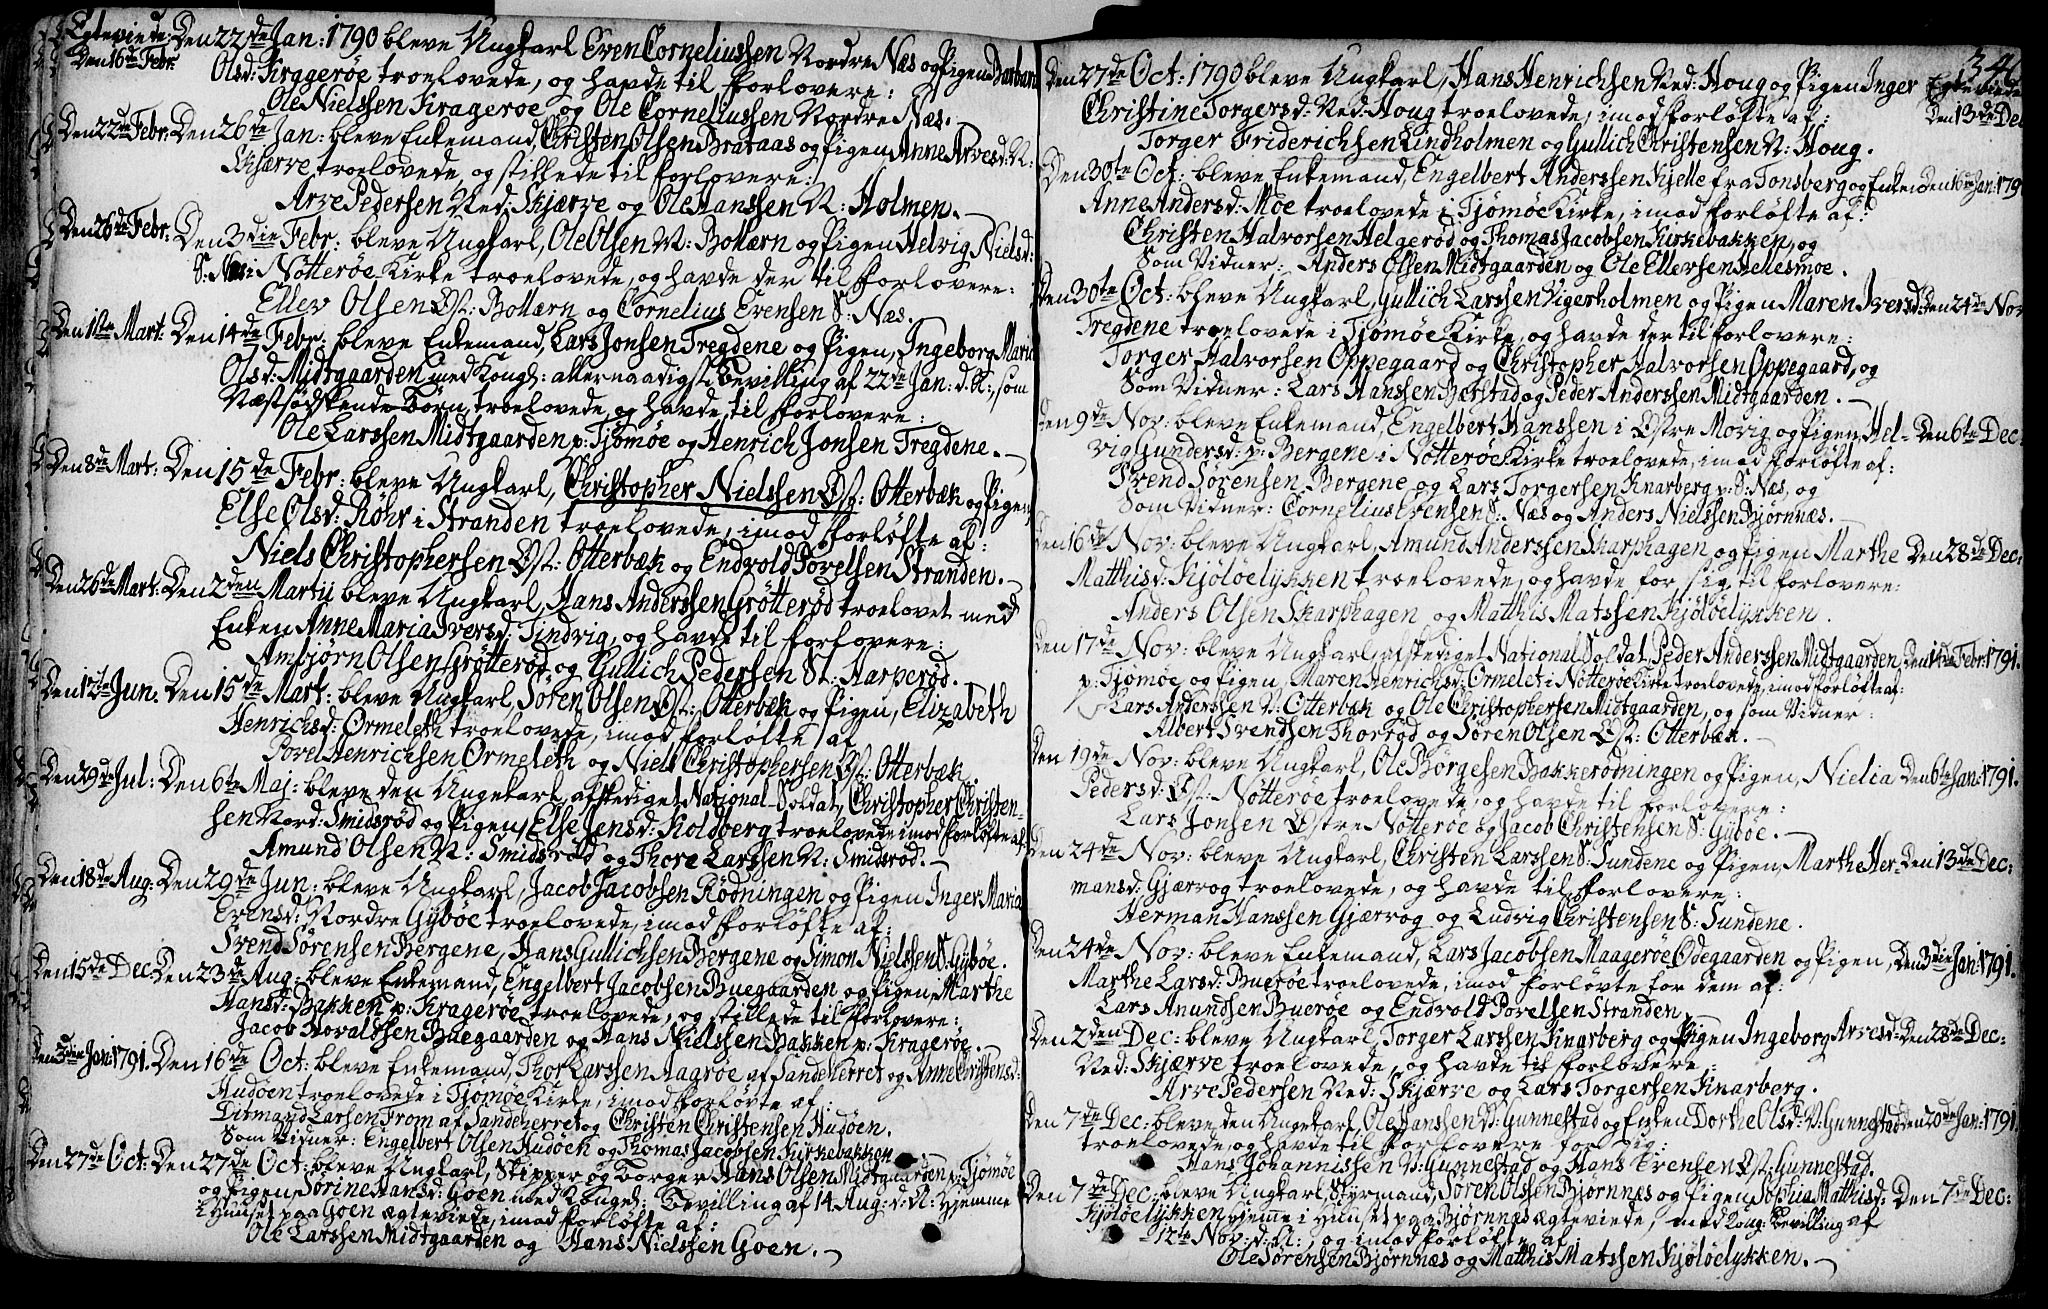 Egteviede: Den 22de Jan: 1790 bleve Ungkarl Even Corneliussen Nordre Næs og Pigen Barbara
Den 16de Febr: Olsd: Kraggerøe troelovede, og havde til Forlovere:
Ole Nielssen Kragerøe og Ole Corneliussen Nordre Næs.
Den 22de Febr: Den 26de Jan: bleve Enkemand, Christen Olsen Brataas og Pigen Anne Arvesd: N:
Skjærve troelovede, og stillede til Forlovere:
Arve Pedersen Ned: Skjærve og Ole Hanssen N: Holmen.
Den 26de Febr: Den 3die Febr: bleve Ungkarl, Ole Olsen N: Bollærn og Pigen Helvig Nielsd:
S: Næs i Nøtterøe Kirke troelovede, og havde der til Forlovere:
Ellev Olsen Øst: Bollærn og Cornelius Evensen S: Næs.
Den 1ste Mart: Den 14de Febr: bleve Enkemand, Lars Jonsen Tregdene og Pigen, Ingeborg Maria
Olsd: Midtgaarden med Kongl: allernaadigst Bevilling af 22de Jan: d: A:, som
Næstsødskende-Børn, troelovede, og havde til Forlovere:
Ole Larssen Midtgaarden p: Tjømøe og Henrich Jonsen Tregdene.
Den 8de Mart: Den 15de Febr: bleve Ungkarl, Christopher Nielssen Øst: Otterbæk og Pigen,
Else Olsd: Røhr i Stranden troelovede, imod Forløfte af:
Niels Christophersen Øst: Otterbæk og Endvold Povelsen Stranden.
Den 26de Mart: Den 2den Martii bleve Ungkarl, Hans Anderssen Grøtterød troelovet med
Enken Anne Maria Iversd: Tindvig, og havde til Forlovere:
Ambjørn Olsen Grøtterød og Gullich Pedersen St: Harperød.
Den 12te Jun: Den 15de Mart: bleve Ungkarl, Søren Olsen Øst: Otterbæk og Pigen, Elizabeth
Henrichsd: Ormeleth troelovede, imod Forløfte af
Povel Henrichsen Ormeleth og Niels Christophersen Øst: Otterbæk.
Den 29de Jul: Den 6te Maj: bleve den Ungekarl, afskediget National-Soldat, Christopher Christen-
sen Nord: Smidsrød og Pigen, Else Jensd: Koldberg troelovede imod Forløfte af
Amund Olsen N: Smidsrød og Thore Larssen N: Smidsrød.
Den 18de Aug: Den 29de Jun: bleve Ungkarl, Jacob Jacobsen Rødningen og Pigen Inger Maria
Evensd: Nordre Gybøe troelovede, imod Forløfte af:
Svend Sørensen Bergene, Hans Gullichsen Bergene og Simon Nielssen S: Gybøe.
Den 15de Dec: Den 23de Aug: bleve Enkemand, Engelbert Jacobsen Buegaarden og Pigen, Marthe
Hansd: Bakken p: Kragerøe troelovede, og stillede til Forlovere:
Jacob Hovaldssen Buegaarden og Hans Nielssen Bakken p: Kragerøe.
Den 3die Jan: 1791. Den 16de Oct: bleve Enkemand, Thor Larssen Aagrøe af Sandeherret og Anne Christensd:
Hudøen troelovede i Tjømøe Kirke, imod Forløvte af:
Ditmand Larsen From af Sandeherret og Christen Christensen Hudøen.
Som Vidner: Engelbert Olsen Hudøek og Thomas Jacobsen Kirkebakken
Den 27de Oct: Den 27de Oct: bleve Ungkarl, Skipper og Borger Hans Olsen Midtgaarden p: Tjømøe
og Pigen, Sørine Hansd: Goen med Kongel: Bevilling af 14 Aug: d: A: hjemme
i Huuset paa Goen ægteviede, imod Forløfte af:
Ole Larssen Midtgaarden og Hans Nielssen Goen.
346
Den 27de Oct: 1790 bleve Ungkarl, Hans Henrichsen Ned: Houg og Pigen Inger Egteviede
Christine Torgersd: Ned: Houg troelovede, imod Forløfte af: Den 13de Dec
Torger Friderichsen Lindholmen og Gullich Christensen N: Houg.
Den 30te Oct: bleve Enkemand, Engelbert Anderssen Kjelle fra Tonsberg og Enken Den 16de Jan: 179
Anne Andersd: Moe troelovede i Tjømøe Kirke, imod Forløfte af:
Christen Halvorsen Helgerød og Thomas Jacobsen Kirkebakken, og
Som Vidner: Anders Olsen Midtgaarden og Ole Ellevsen Hellesmoe.
Den 30te Oct: bleve Ungkarl, Gullich Larssen Vigerholmen og Pigen Maren Iversd: Den 24de Nov
Tregdene troelovede i Tjømøe Kirke, og havde der til Forlovere:
Torger Halvorsen Oppegaard og Christopher Halvorsen Oppegaard, og
Som Vidner: Lars Hanssen Bærstad og Peder Anderssen Midtgaarden.
Den 9de Nov: bleve Enkemand, Engelbert Hanssen i Østre Movig og Pigen, Hel- Den 6te Dec:
vig Gundersd: p: Bergene i Nøtterøe Kirke troelovede, imod Forløfte af:
Svend Sørensen Bergene og Lars Torgersen Knarberg p: S: Næs, og
Som Vidner: Cornelius Evensen S: Næs og Anders Nielssen Bjørnnæs.
Den 16de Nov: bleve Ungkarl, Amund Anderssen Skarphagen, og Pigen Marthe Den 28de Dec:
Matthisd: Kjøløelykken troelovede, og havde for sig til Forlovere:
Anders Olsen Skarphagen og Matthis Matssen Kjøløelykken.
Den 17de Nov: bleve Ungkarl, afskediget National Soldat, Peder Anderssen Midtgaarden Den 1ste Febr: 1791.
p: Tjømøe og Pigen, Maren Henrichsd: Ormelet i Nøtterøe Kirke troelovede, imod Forløfte af:
Lars Anderssen N: Otterbæk og Ole Christophersen Midtgaarden, og som Vidner:
Albert Svendsen Thorrød og Søren Olsen Øst: Otterbæk.
Den 19de Nov: bleve Ungkarl, Ole Børgesen Bakkerødningen og Pigen, Nielia Den 6te Jan: 1791.
Pedersd: Øst: Nøtterøe troelovede, og havde til Forlovere:
Lars Jonsen Østre Nøtterøe og Jacob Christensen S: Gybøe.
Den 24de Nov: bleve Ungkarl, Christen Larssen S: Sundene og Pigen, Marthe Her- Den 13de Dec:
mansd: Gjærvog troelovede, og havde til Forlovere:
Herman Hanssen Gjærvog og Ludvig Christensen S: Sundene.
Den 24de Nov: bleve Enkemand, Lars Jacobsen Maagerøe Ødegaarden og Pigen, Den 3die Jan: 1791.
Marthe Larsd: Buerøe troelovede, imod Forløvte for dem af:
Lars Anundsen Buerøe og Endvold Povelsen Stranden.
Den 2den Dec: bleve Ungkarl, Torger Larssen Knarberg og Pigen Ingeborg Arvesd: Den 28de Dec:
Ned: Skjærve troelovede, og havde til Forlovere:
Arve Pedersen Ned: Skjærve og Lars Torgersen Knarberg.
Den 7de Dec: bleve den Ungekarl, Ole Hanssen N: Gunnestad og Enken Dorthe Olsd: V: Gunnestad Den 20de Jan: 1791.
troelovede, og havde til Forlovere for sig:
Hans Johannissen N: Gunnestad og Hans Evensen Øst: Gunnestad.
Den 7de Dec: bleve Ungkarl, Styrmand, Søren Olssen Bjørnnæs og Pigen, Sophia Matthisd: Den 7de Dec:
Kjøløelykken hjemme i Huuset paa Bjørnnæs ægteviede, med Kong: Bevilling af
12te Nov: d: A: , og imod Forløfte af
Ole Sørensen Bjørnnæs og Matthis Matssen Kjøløelykken.